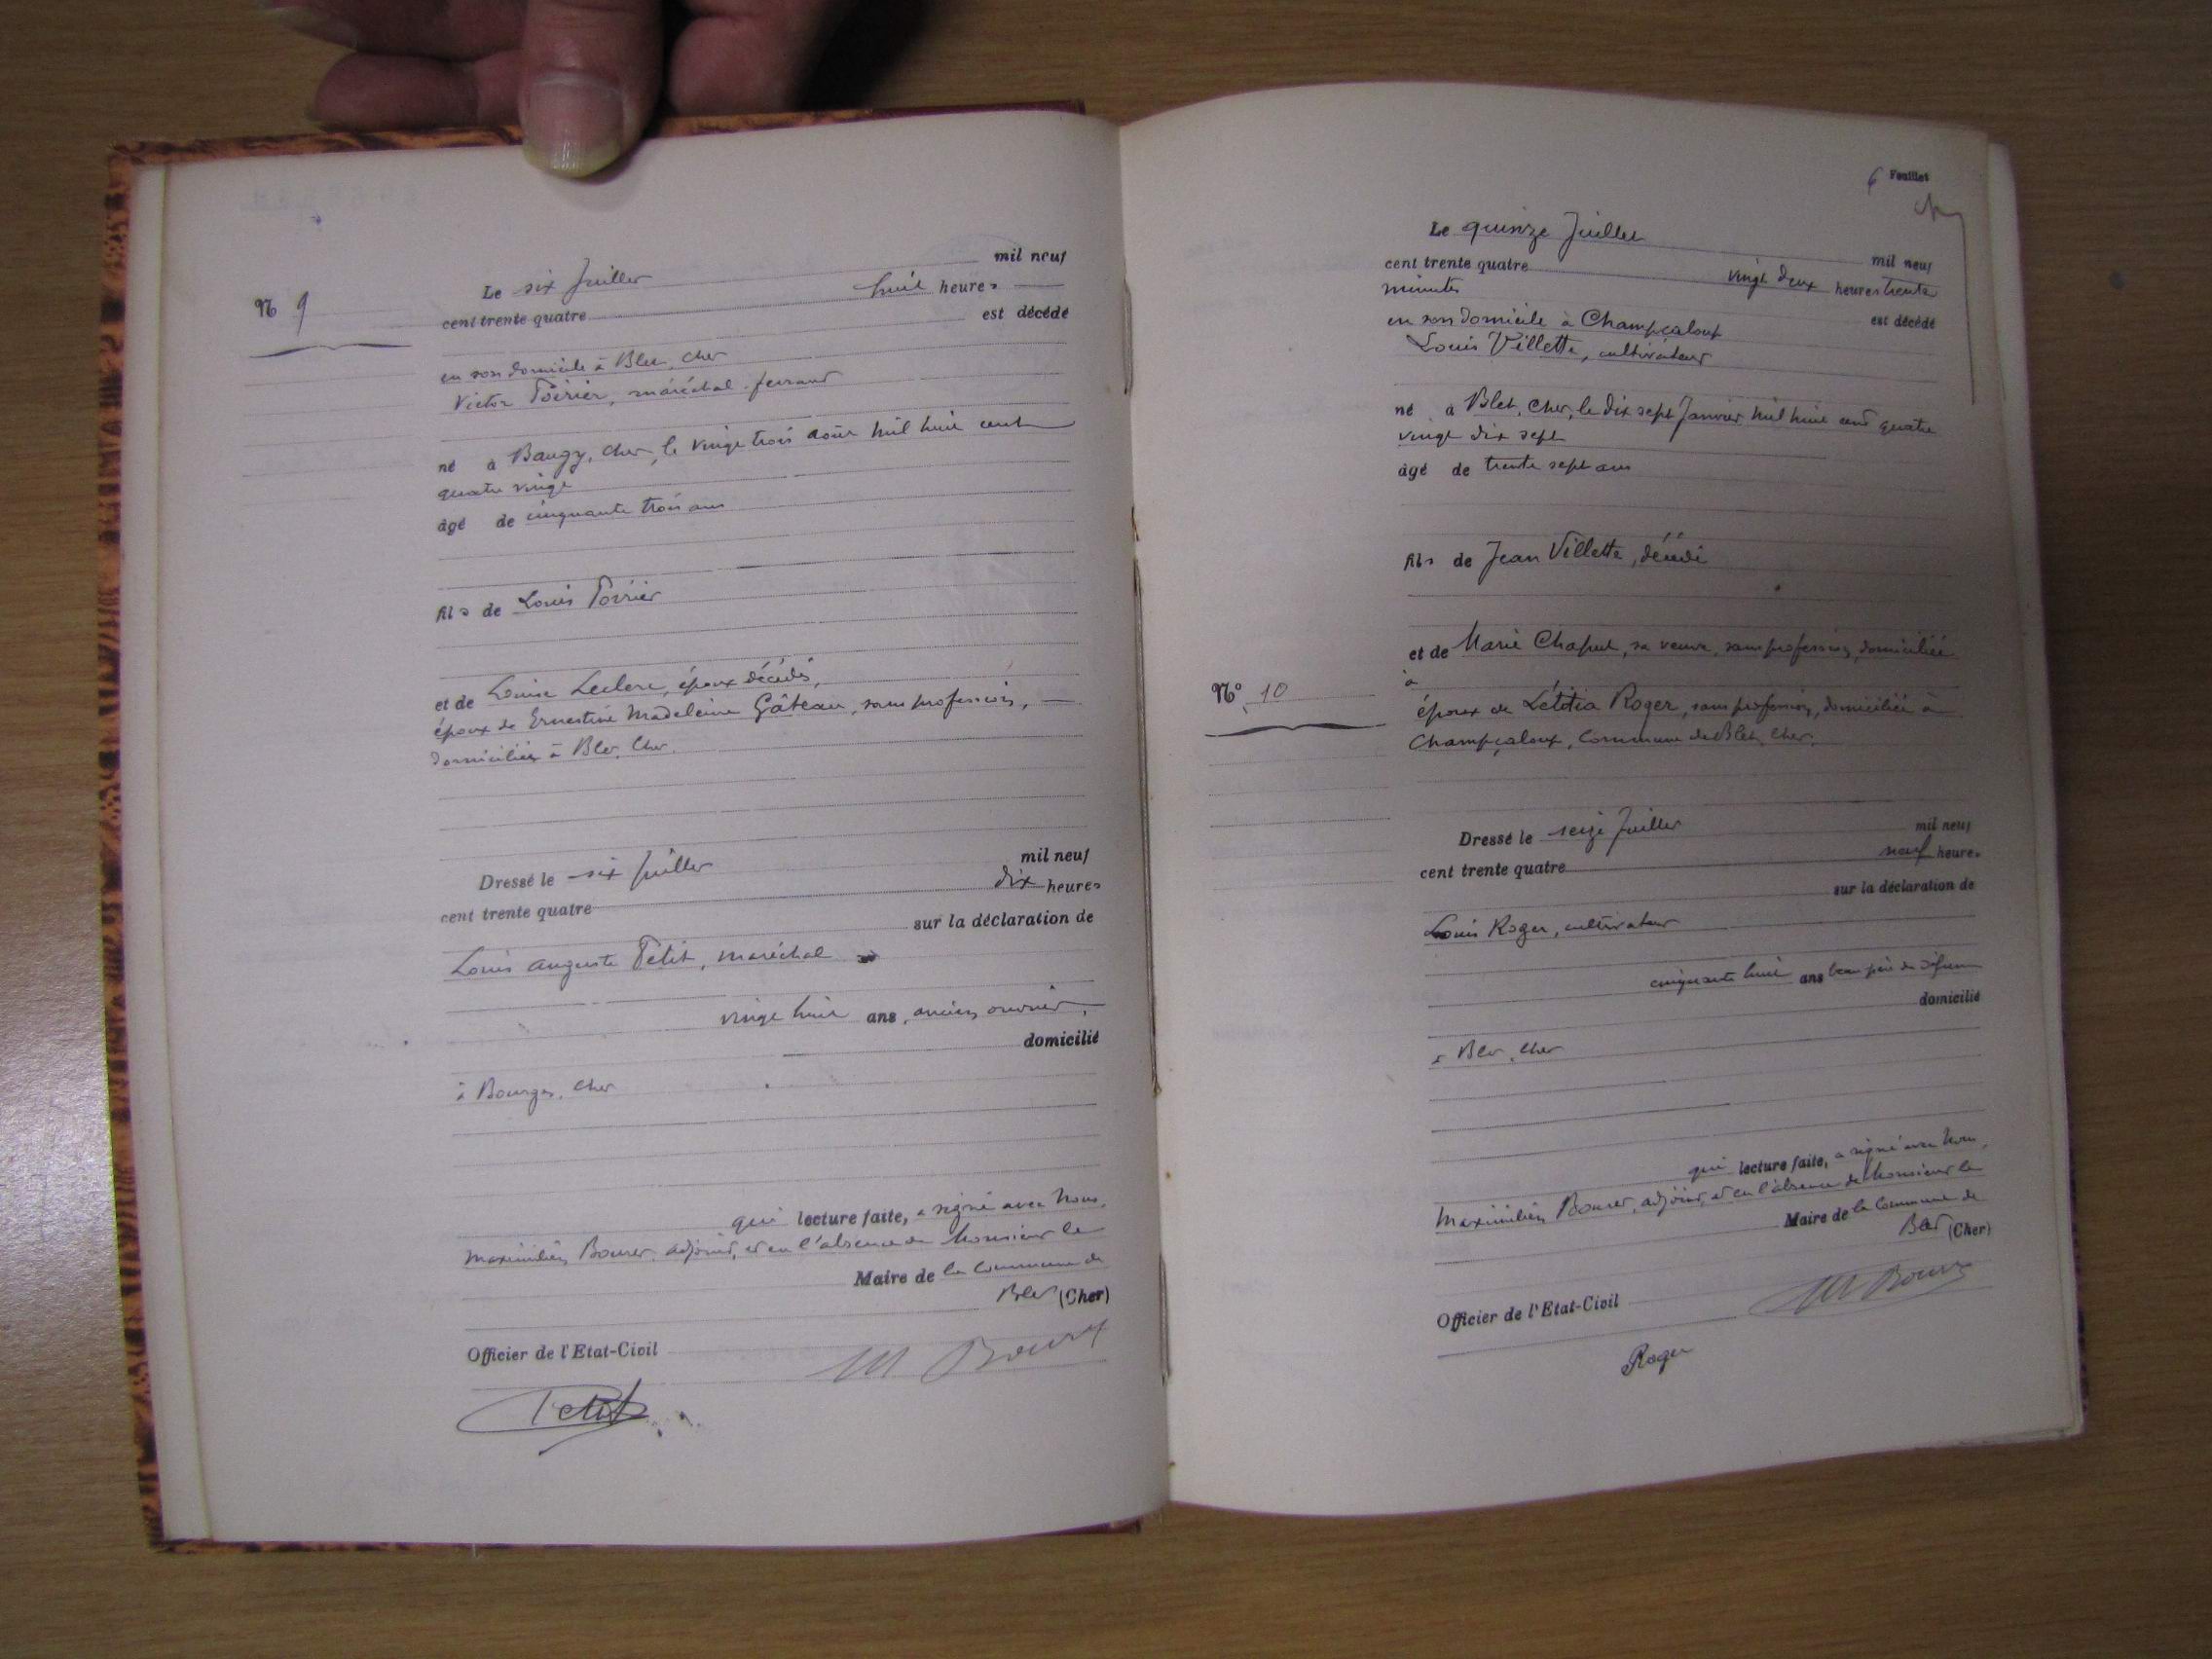 Nº 9
Le six Juillet mil neuf
cent trente quatre huit heures
est décédé
en son domicile à Blet, Cher
Victor Poirier, maréchal-ferrand
né à Baugy, Cher, le vingt trois août mil huit cent
quatre vingt
âgé de cinquante trois ans
fils de Louis Poirier
et de Louise Leclerc, époux décédés,
époux de Ernestine Madeleine Gâteau, sans profession,
domiciliée à Blet, Cher.
Dressé le six Juillet mil neuf
cent trente quatre dix heures
sur la déclaration de
Louis Auguste Petit, maréchal
vingt huit ans, ancien ouvrier,
domicilié
à Bourges, Cher
qui lecture faite, a signé avec Nous,
Maximilien Bouret, adjoint, et en l'absence de Monsieur le
Maire de la Commune de
Blet (Cher)
Officier de l'Etat-Civil
M Bouret
Petit
6 Feuillet
Nº 10
Le quinze Juillet mil neuf
cent trente quatre vingt deux heures trente
minutes
est décédé
en son domicile à Champçaloux
Louis Villette, cultivateur
né à Blet, Cher, le dix sept Janvier mil huit cent quatre
vingt dix sept
âgé de trente sept ans
fils de Jean Villette, décédé
et de Marie Chaput, sa veuve, sans profession, domiciliée
à
époux de Létitia Roger, sans profession, domiciliée à
Champçaloux, Commune de Blet, Cher.
Dressé le seize Juillet mil neuf
cent trente quatre neuf heures
sur la déclaration de
Louis Roger, cultivateur
cinquante huit ans beau père du défunt
domicilié
à Blet, Cher
qui lecture faite, a signé avec Nous,
Maximilien Bouret, adjoint, et en l'absence de Monsieur le
Maire de la Commune de
Blet (Cher)
Officier de l'Etat-Civil
M Bouret
Roger